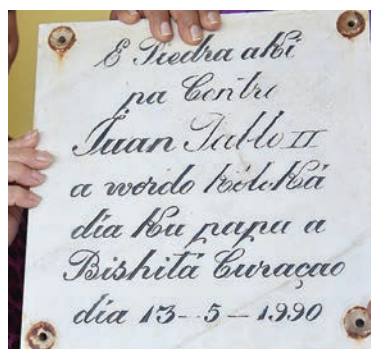 E Piedra aki
pa Centro
Juan Pablo II
a wordo kóloká
dia ku papa a
Bishitá Curaçao
dia 13-5-1990